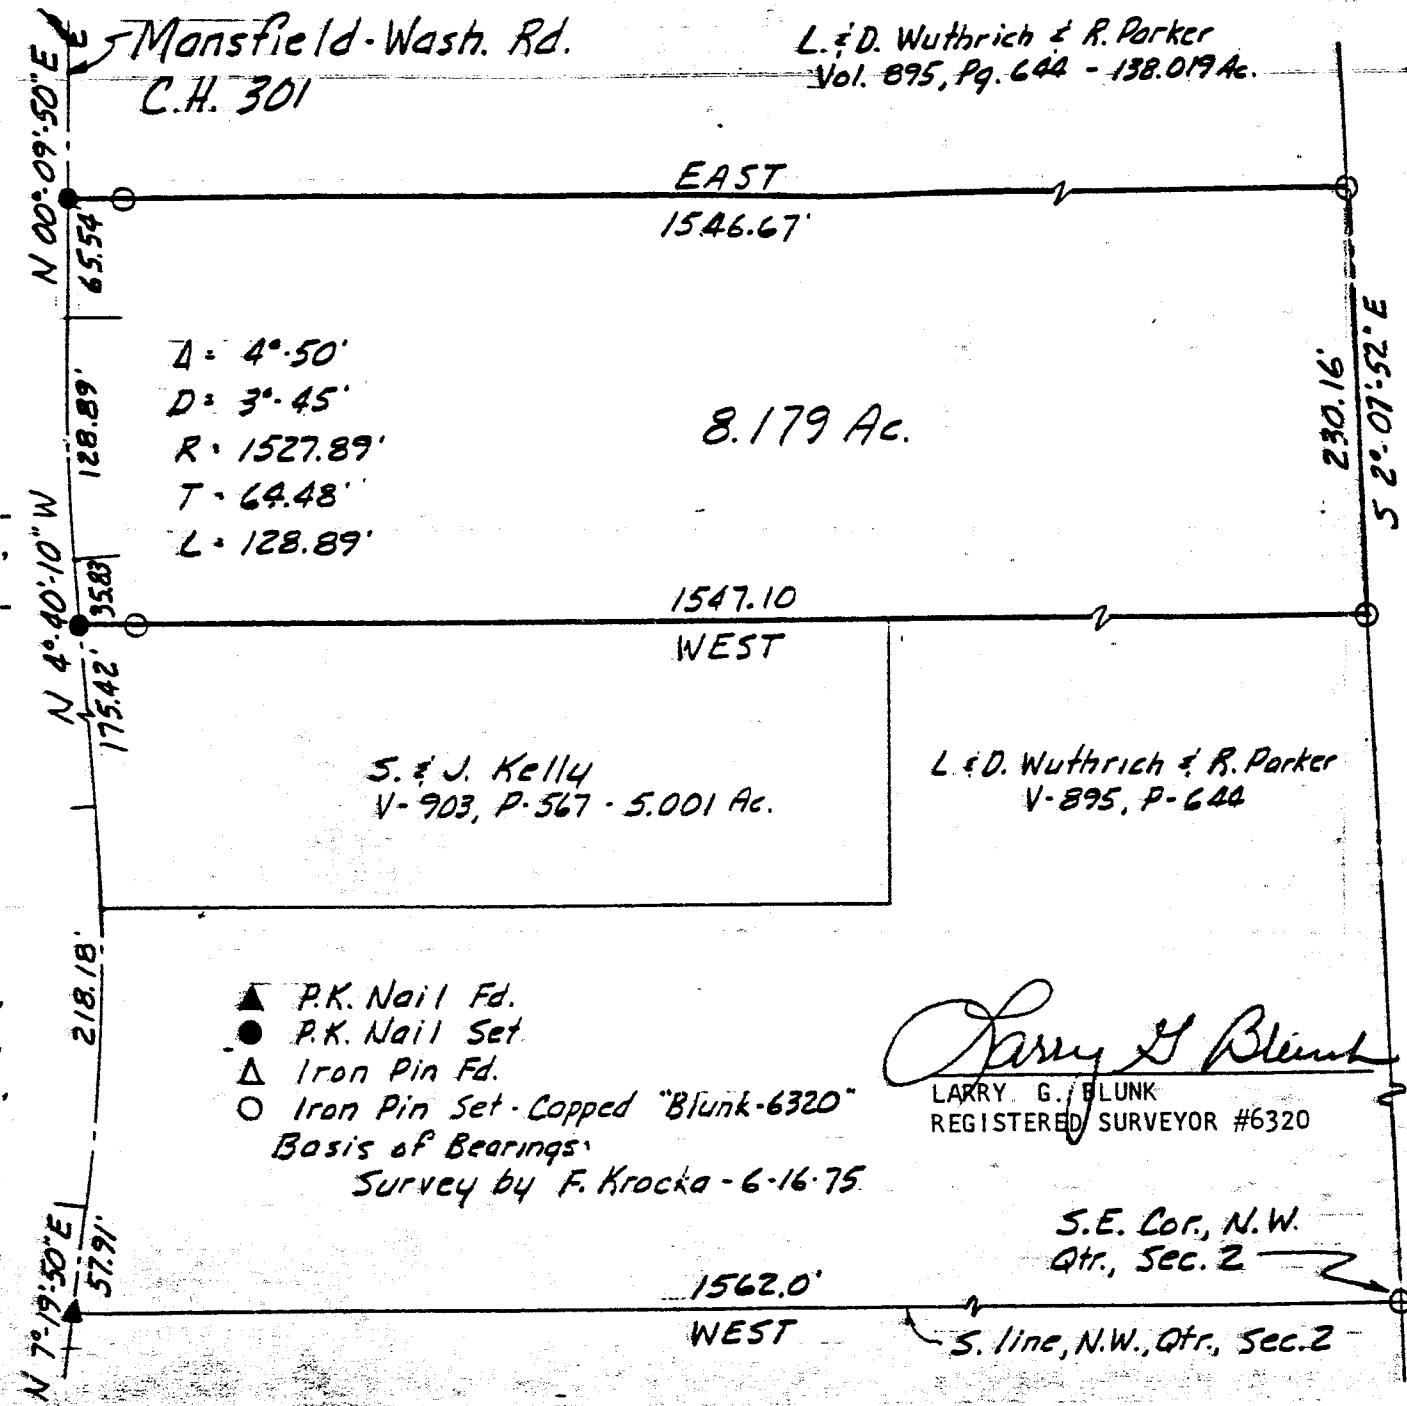 Mansfield-Wash. Rd.
C.H. 301
L. & D. Wuthrich & R. Parker
Vol. 895, Pg. 644 - 138.019 Ac.
N 00°-09'-50" E
EAST
1546.67'
65.54'
Δ = 4°-50'
D = 3°-45'
R = 1527.89'
T = 64.48'
L = 128.89'
128.89'
8.179 Ac.
230.16'
S 2°-07'-52" E
N 4°-40'-10" W
35.83'
1547.10
WEST
175.42'
S. & J. Kelly
V-903, P-567 - 5.001 Ac.
L & D. Wuthrich & R. Parker
V-895, P-644
218.18'
▲ P.K. Nail Fd.
● P.K. Nail Set
△ Iron Pin Fd.
○ Iron Pin Set - Capped "Blunk-6320"
Basis of Bearings:
Survey by F. Krocka - 6-16-75
Larry G Blunk
LARRY G. BLUNK
REGISTERED SURVEYOR #6320
S.E. Cor., N.W.
Qtr., Sec. 2
N 7°-19'-50" E
57.91'
1562.0'
WEST
S. line, N.W., Qtr., Sec. 2